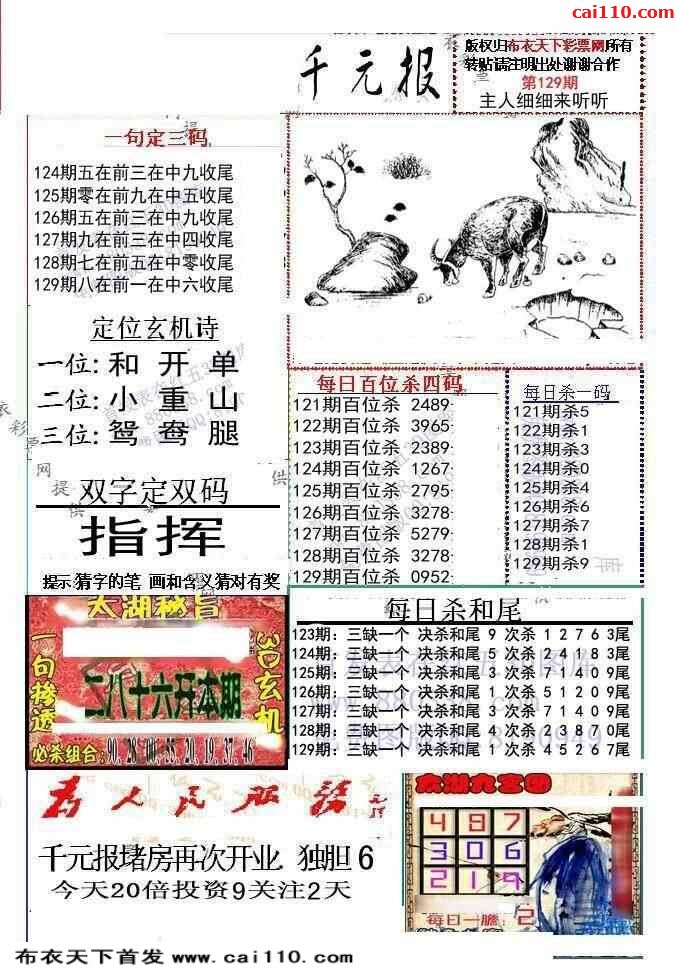 cai110.com
版权归布衣天下彩票网所有
转贴请注明出处谢谢合作
千元报
第129期
主人细细来听听
一句定三码
124期五在前三在中九收尾
125期零在前九在中五收尾
126期五在前三在中九收尾
127期九在前三在中四收尾
128期七在前五在中零收尾
129期八在前一在中六收尾
定位玄机诗
一位: 和 开 单
二位: 小 重 山
三位: 鸳 鸯 腿
双字定双码
指挥
提示:猜字的笔 画和含义猜对有奖
每日百位杀四码
121期百位杀 2489
122期百位杀 3965
123期百位杀 2389
124期百位杀 1267
125期百位杀 2795
126期百位杀 3278
127期百位杀 5279
128期百位杀 3278
129期百位杀 0952
每日杀一码
121期杀5
122期杀1
123期杀3
124期杀0
125期杀4
126期杀6
127期杀7
128期杀1
129期杀9
太湖秘旨
一句掺透
3D玄机
二八十六开本期
必杀组合:90.28.00.55.20.19.37.46
每日杀和尾
123期: 三缺一个 决杀和尾 9 次杀 1 2 7 6 3尾
124期: 三缺一个 决杀和尾 5 次杀 2 4 1 8 3尾
125期: 三缺一个 决杀和尾 3 次杀 7 1 4 0 9尾
126期: 三缺一个 决杀和尾 1 次杀 0 5 1 2 0 9尾
127期: 三缺一个 决杀和尾 3 次杀 7 1 4 0 9尾
128期: 三缺一个 决杀和尾 4 次杀 2 3 8 7 0尾
129期: 三缺一个 决杀和尾 1 次杀 4 5 2 6 7尾
为人民服务
千元报堵房再次开业 独胆 6
今天20倍投资9关注2天
太湖九宫图
4 9 7
3 0 6
2 1 9
每日一胆: 2
布衣天下首发 www.cai110.com